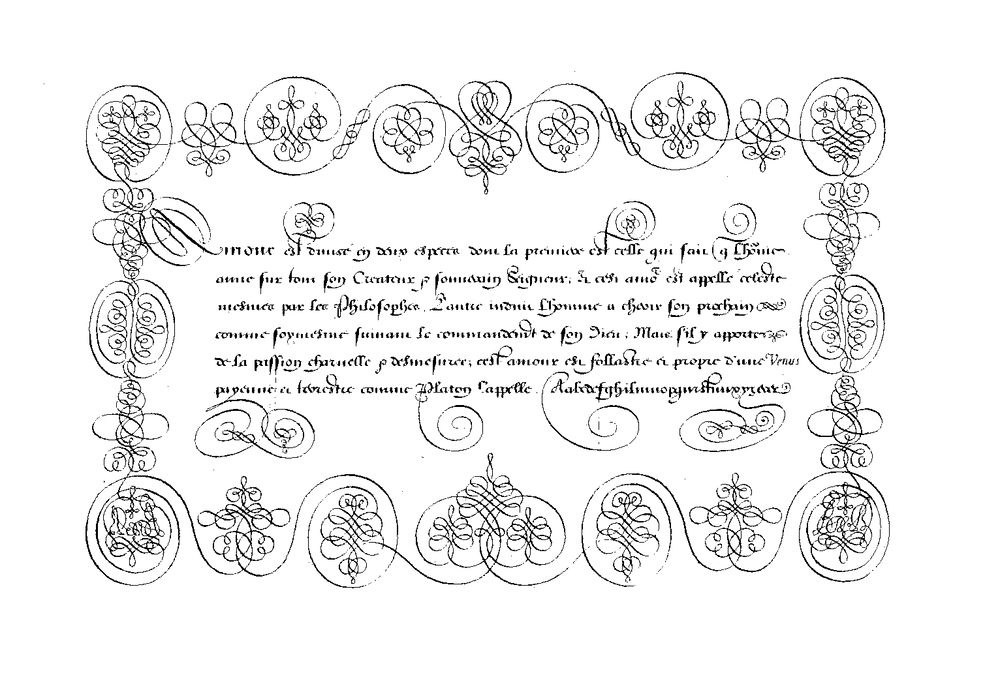 Amour est divisé en deux especes dont la premiere est celle qui fait q lhõme
aime sur tout son Createur & souverain Seigneur; Et cest amõr est appelle celeste
mesmes par les Philosophes. L'autre induit Lhomme a cheoir son prochain
comme soymesme suivant le commandemt de son Dieu; Mais s'il y apporte
de la passion charnelle & desmesuree; cest amour est follastre et propre d'une Venus
payenne et terrestre comme Platon l'appelle